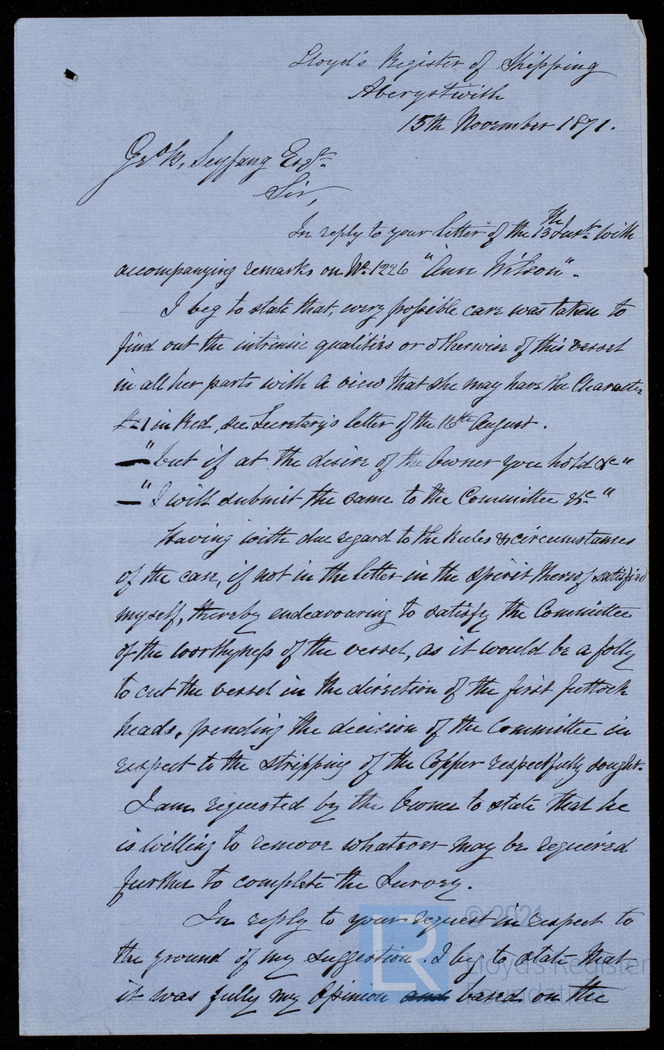 Lloyd's Register of Shipping
Aberystwith
15th November 1871.
Geo. W. Seyfang Esqre.
Sir,
In reply to your letter of the 13th Inst. with
accompanying remarks on No. 1226 "Ann Wilson".
I beg to state that, every possible care was taken to
find out the intrinsic qualities or otherwise of this vessel
in all her parts with a view that she may have the Character
A-1 in Red, see Secretary's letter of the 16th August.
— "but if at the desire of the Owner you hold &c"
— "I will submit the same to the Committee &c"
Having with due regard to the Rules & circumstances
of the case, if not in the letter in the spirit thereof satisfied
myself, thereby endeavouring to satisfy the Committee
of the worthyness of the vessel, as it would be a folly
to cut the vessel in the direction of the first futtock
heads, pending the decision of the Committee in
respect to the stripping of the Copper respectfully sought.
I am requested by the Owner to state that he
is willing to remove whatever may be required
further to complete the Survey.
In reply to your request in respect to
the ground of my suggestion. I beg to state that
it was fully my Opinion and based on the
LR
© 2021
Lloyd's Register
Foundation